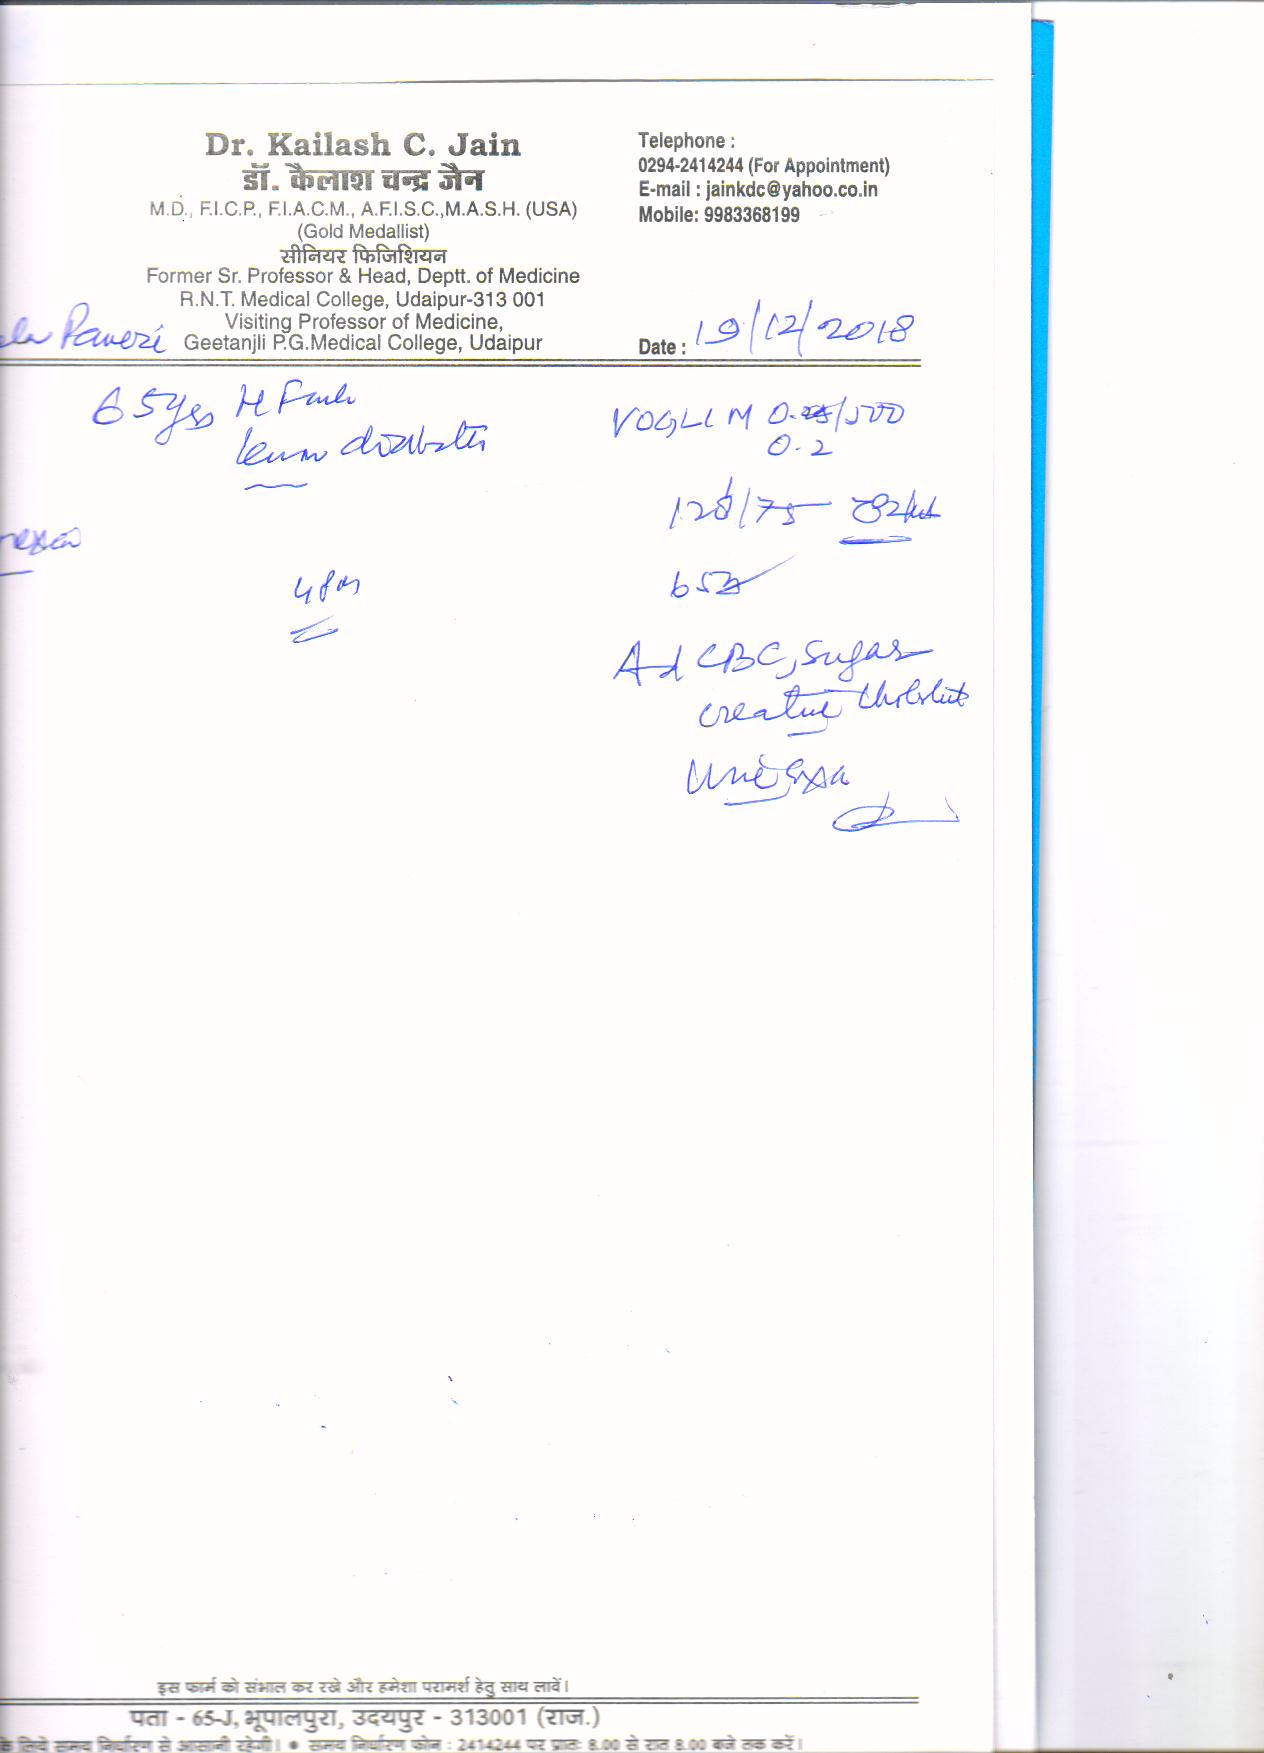 Dr. Kailash C. Jain
डॉ. कैलाश चन्द्र जैन
M.D., F.I.C.P., F.I.A.C.M., A.F.I.S.C.,M.A.S.H. (USA)
(Gold Medallist)
सीनियर फिजिशियन
Former Sr. Professor & Head, Deptt. of Medicine
R.N.T. Medical College, Udaipur-313 001
Visiting Professor of Medicine,
Geetanjli P.G.Medical College, Udaipur
Telephone :
0294-2414244 (For Appointment)
E-mail : jainkdc@yahoo.co.in
Mobile: 9983368199
Paneri
Date : 19/12/2018
65yrs H
VOGLI M 0. /500
0.2
/75
Ad CBC, Sugar
Creatine
Urine
इस फार्म को संभाल कर रखे और हमेशा परामर्श हेतु साथ लावें।
पता - 65-J, भूपालपुरा, उदयपुर - 313001 (राज.)
के लिये समय निर्धारण से आसानी रहेगी। ● समय निर्धारण फोन : 2414244 पर प्रातः 8.00 से रात 8.00 बजे तक करें।